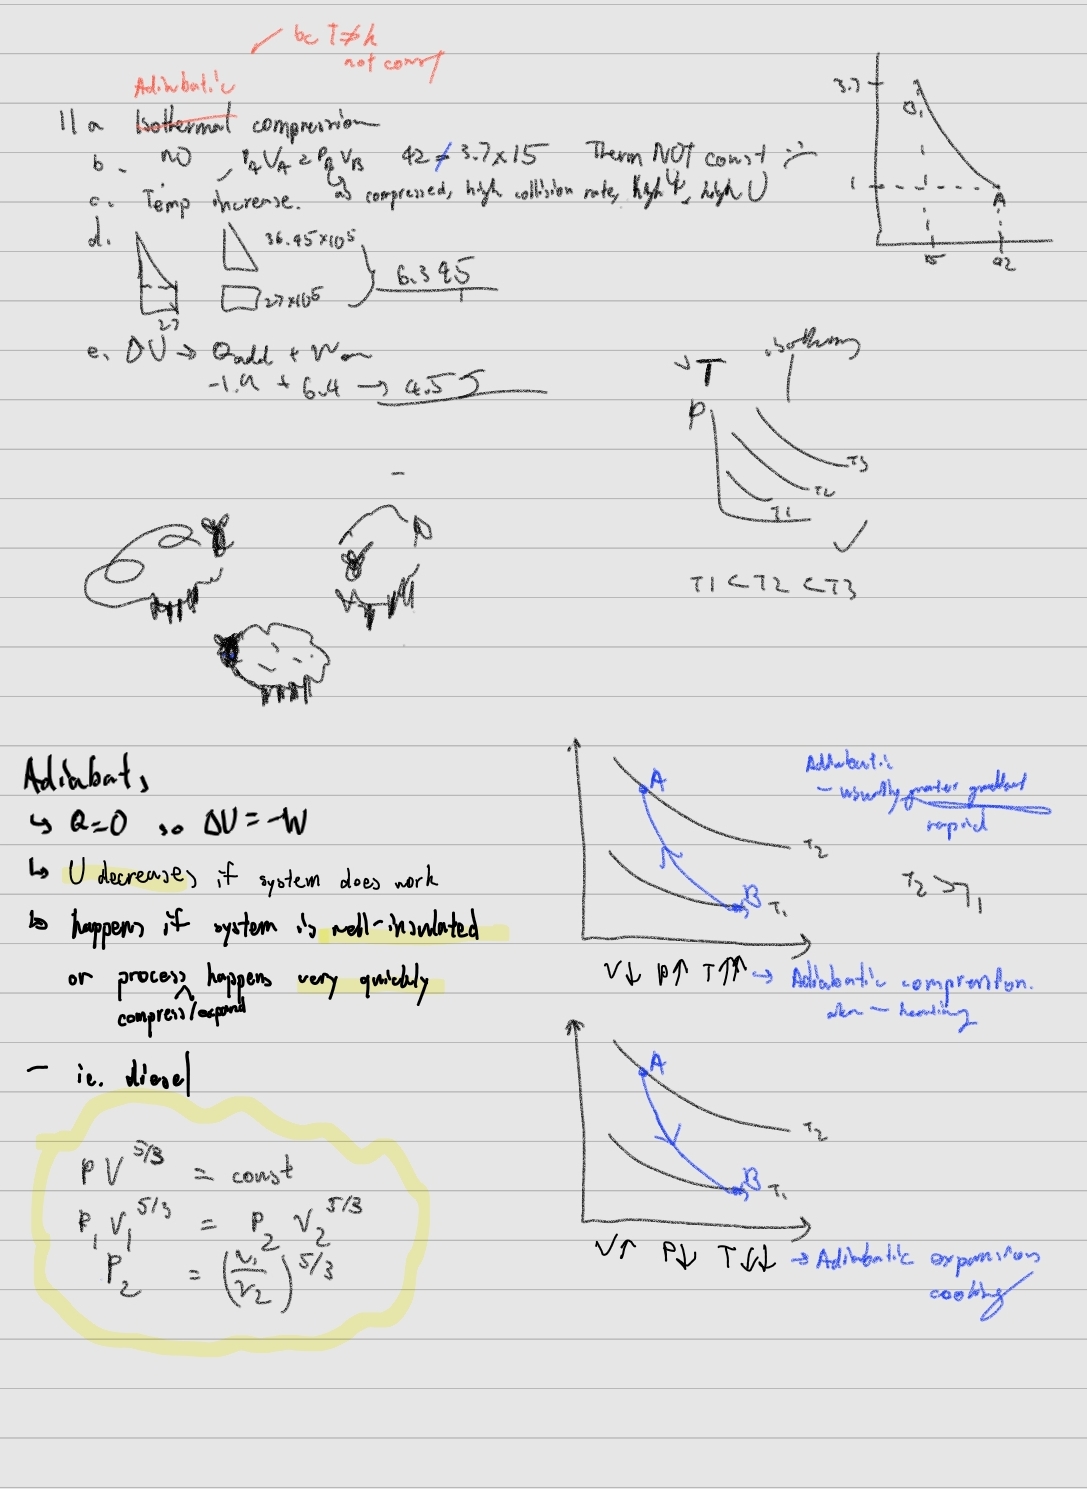 bc T ≠ k
not const
Adiabatic
11 a Isothermal compression
b. no , P_A V_A = P_B V_B 42 ≠ 3.7×15 Therm NOT const
c. Temp increase. as compressed, high collision rate, high U
d.
36.45×10^5
27×10^5
6.395
27
e. ΔU → Q add + W on
-1.9 + 6.4 → 4.5 J
3.7
B
1
A
15
42
T
isotherm
P
T3
T2
T1
T1 < T2 < T3
Adiabats
↳ Q=0 so ΔU = -W
↳ U decreases if system does work
↳ happens if system is well-insulated
or process happens very quickly
compress/expand
- ie. diesel
PV^5/3 = const
P_1 V_1^5/3 = P_2 V_2^5/3
P_2 = (V_1/V_2)^5/3
A
Adiabatic
- usually greater gradient
rapid
T_2
T_2 > T_1
B T_1
V↓ P↑ T↑↑ → Adiabatic compression.
heating
A
T_2
B T_1
V↑ P↓ T↓↓ → Adiabatic expansion
cooling